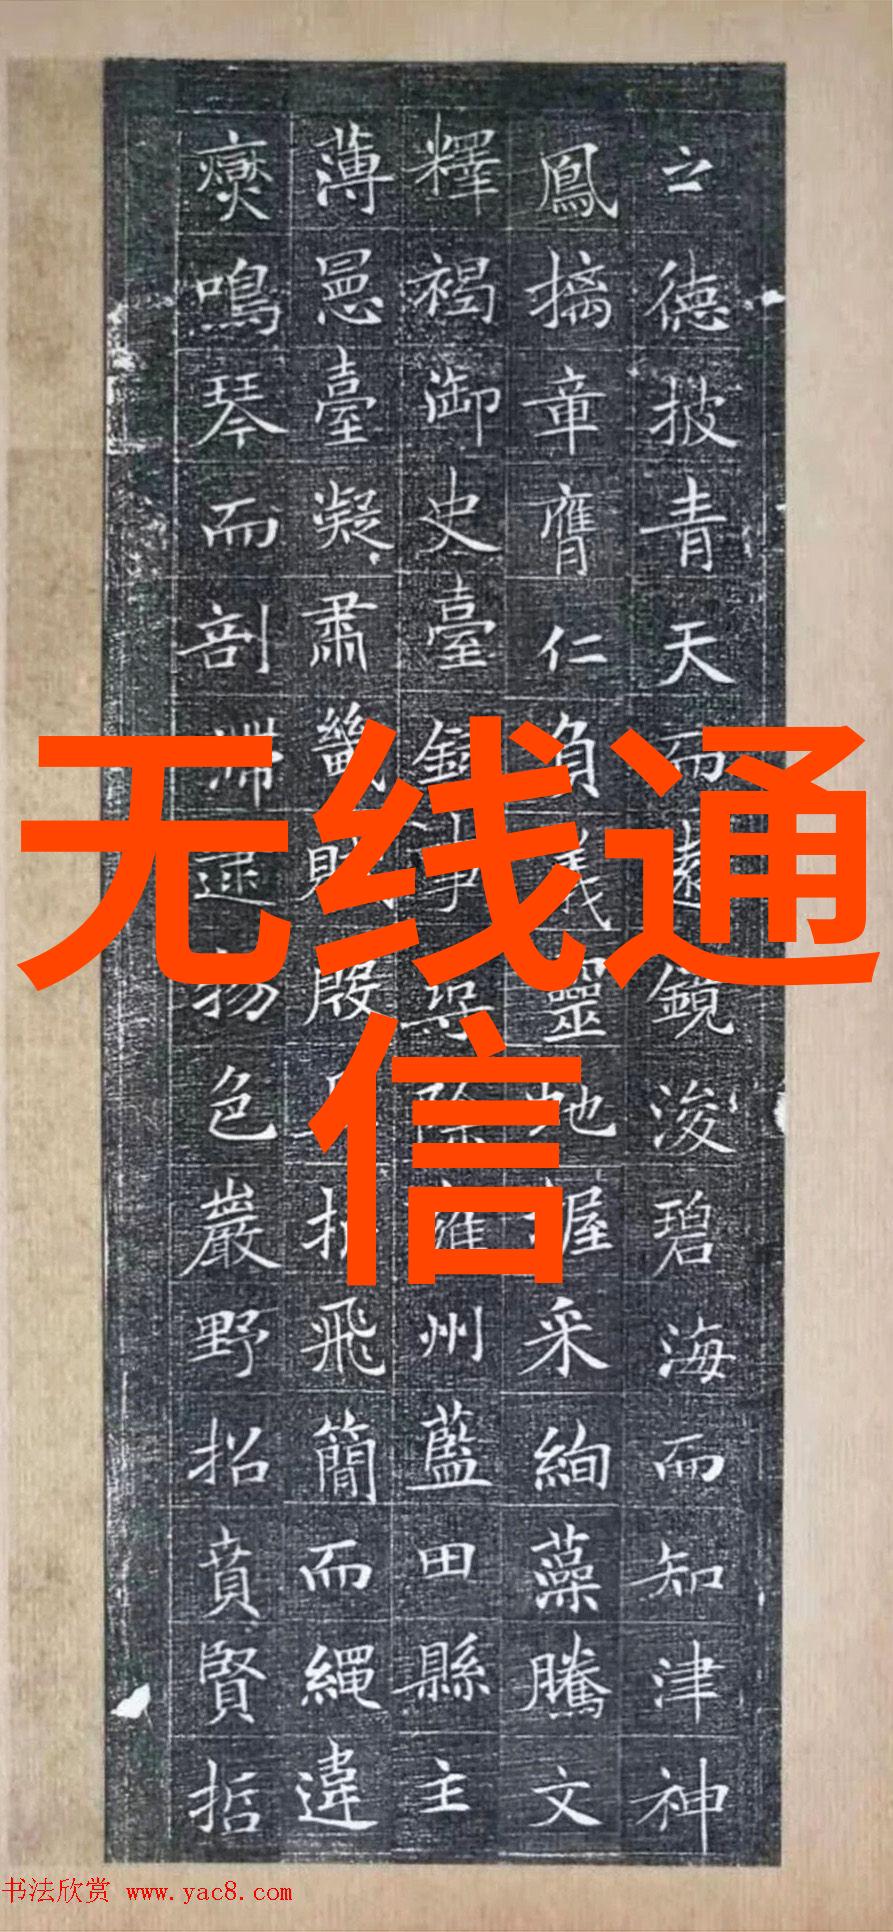 之德披青天而遠鏡浚碧海而知津神
鳳摛章膺仁負義靈虵握采絢藻騰文
釋褐御史臺錄事尋除雍州藍田縣主
薄臺凝肅畿殷飛簡而繩違
鳴琴而剖滯逮物色巖野招賁賢哲
无线通
信
书法欣赏 www.yac8.com